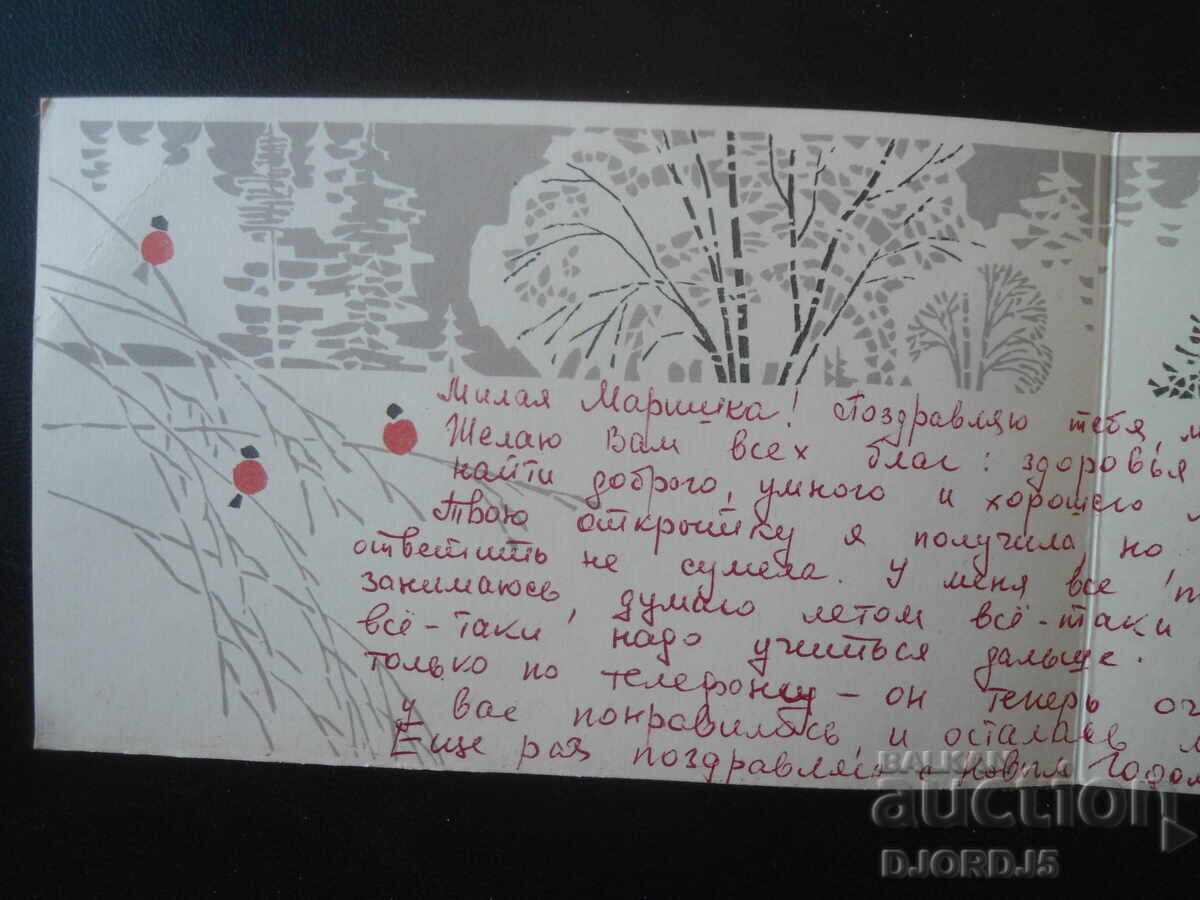 Милая Маришка! Поздравляю тебя, м
Желаю Вам всех благ: здоровья
найти доброго, умного и хорошего
Твою открытку я получила, но,
ответить не сумела. У меня все
занимаюсь, думаю летом всё-таки
всё-таки надо учиться дальше.
только по телефону – он теперь оч
у вас понравилось, и осталась
Еще раз поздравляю с Новым Годом
BALKAN
auction
DJORDJ5